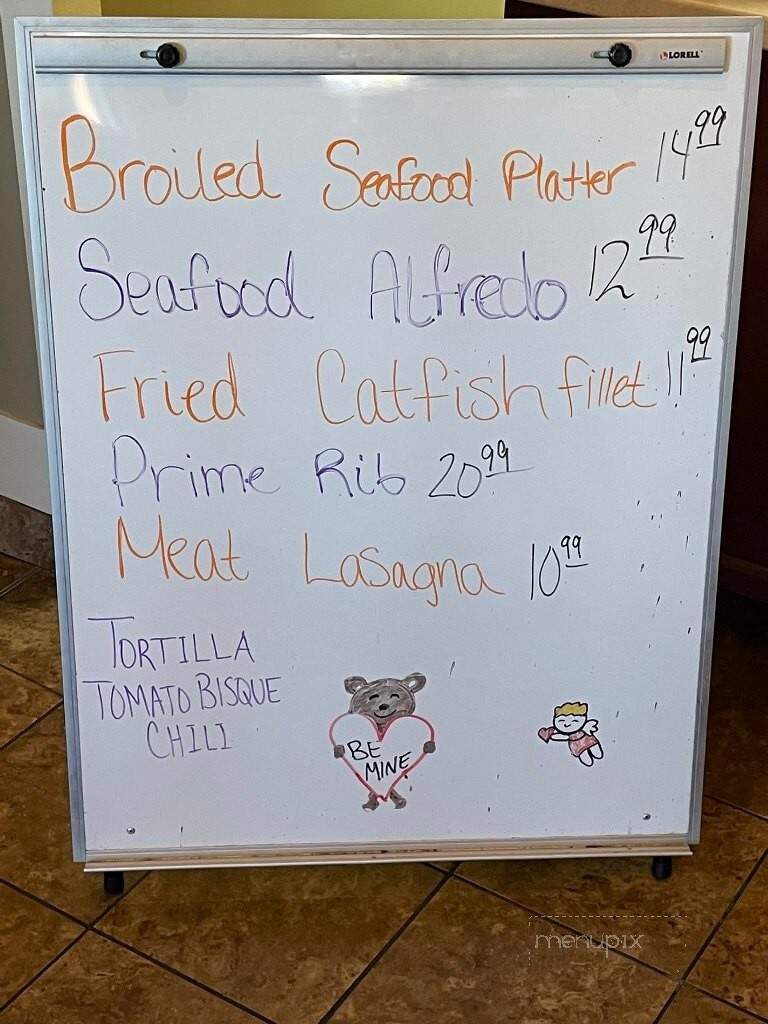 LORELL
Broiled Seafood Platter 14 99
Seafood Alfredo 12 99
Fried Catfish fillet 11 99
Prime Rib 20 99
Meat Lasagna 10 99
TORTILLA
TOMATO BISQUE
CHILI
BE
MINE
menupix